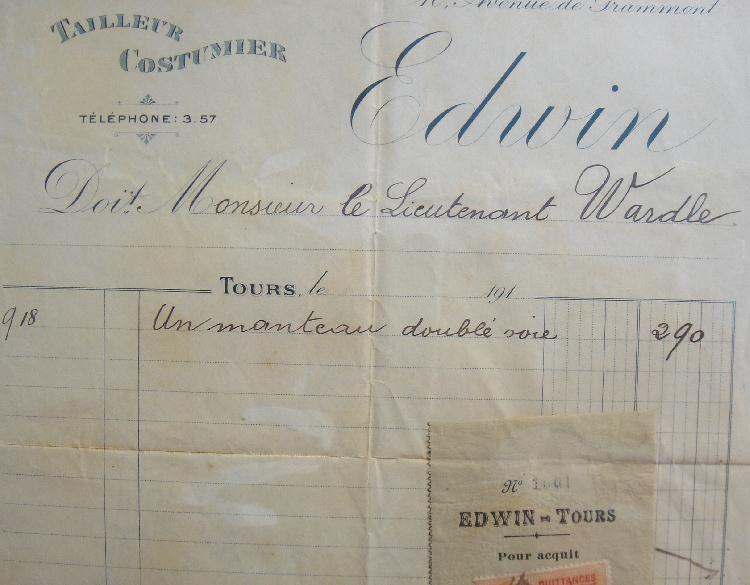 Avenue de Grammont
TAILLEUR
COSTUMIER
TÉLÉPHONE: 3.57
Edwin
Doit Monsieur le Lieutenant Wardle
TOURS, le 191
918 Un manteau doublé soie 290
No
EDWIN - TOURS
Pour acquit
QUITTANCES